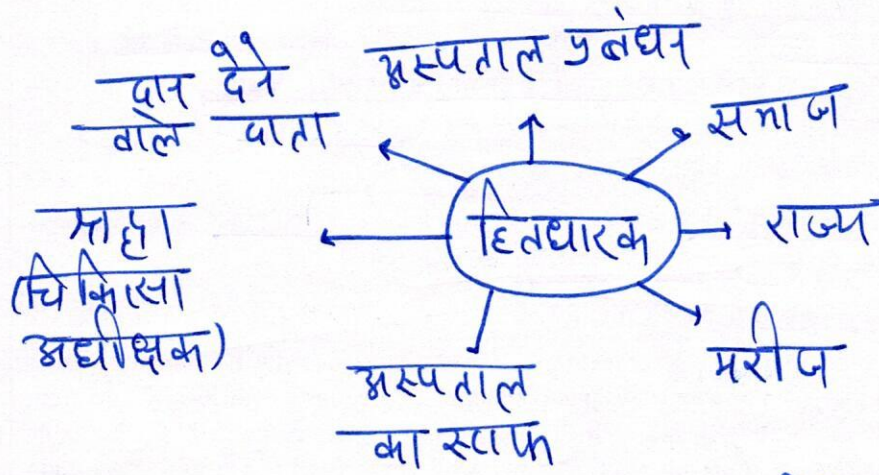 दान देने
वाले दाता
अस्पताल प्रबंधन
समाज
(चिकित्सा
अधीक्षक)
हितधारक
राज्य
अस्पताल
का स्टाफ
मरीज